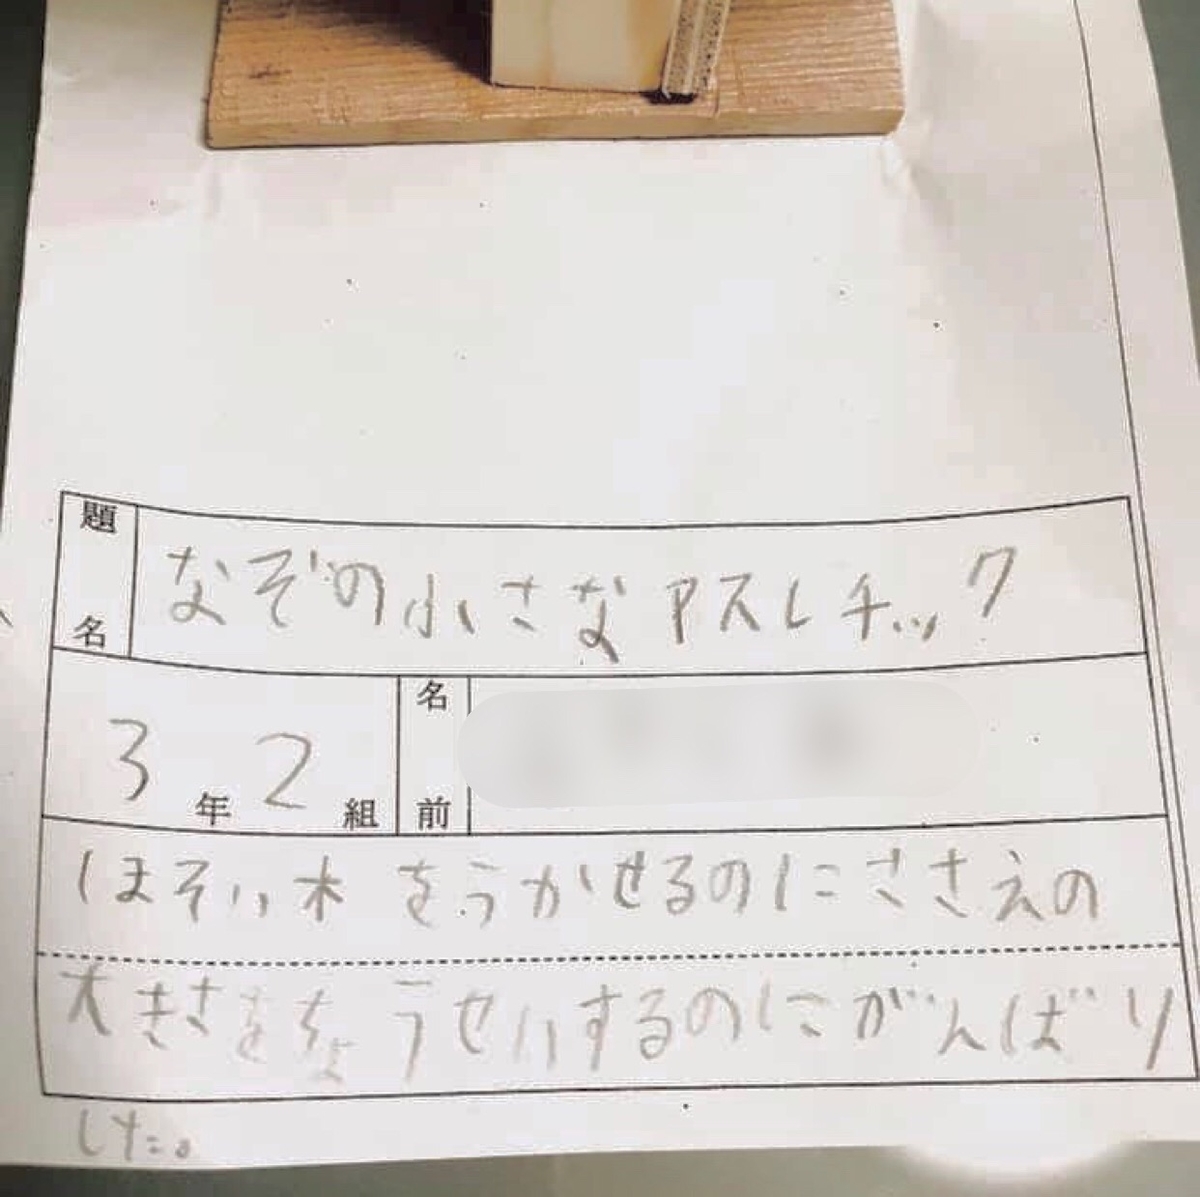 題名 なぞの小さなアスレチック
3年2組 名前
ほそい木をうかせるのにささえの
大きさをちょうせいするのにがんばり
した。